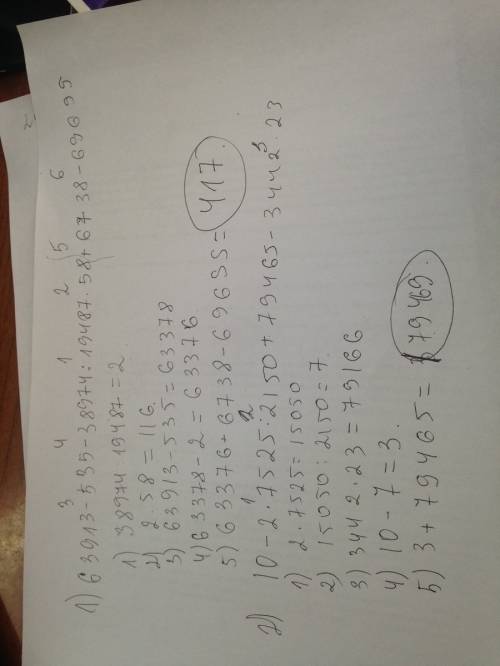 3 4 1 2 5 6
1) 63913-535-38974:19487·58+6738-69695
1) 38974:19487=2
2) 2·58=116
3) 63913-535=63378
4) 63378-2=63376
5) 63376+6738-69695=417.
1 2 3
2) 10-2·7525:2150+79465-3442·23
1) 2·7525=15050
2) 15050:2150=7.
3) 3442·23=79166
4) 10-7=3.
5) 3+79465=79469.